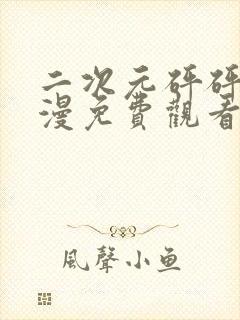 二次元砰砰
漫免費觀看
風聲小鱼